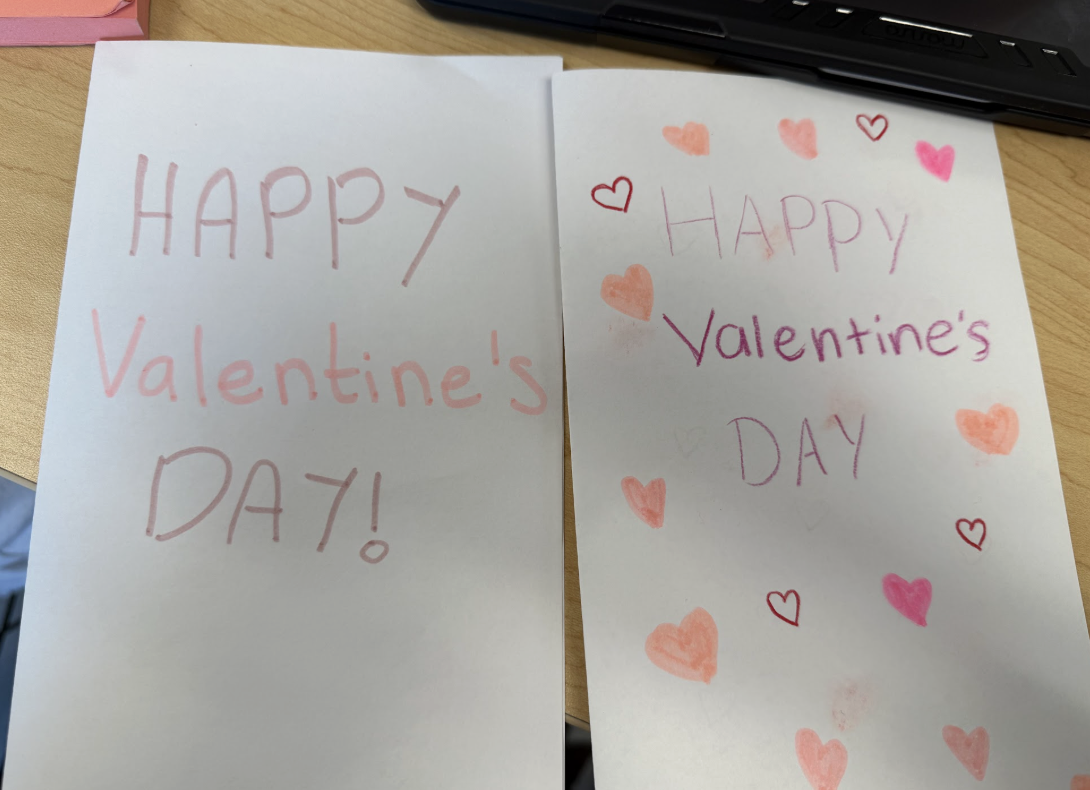 HAPPY
Valentine's
DAY!
HAPPY
Valentine's
DAY